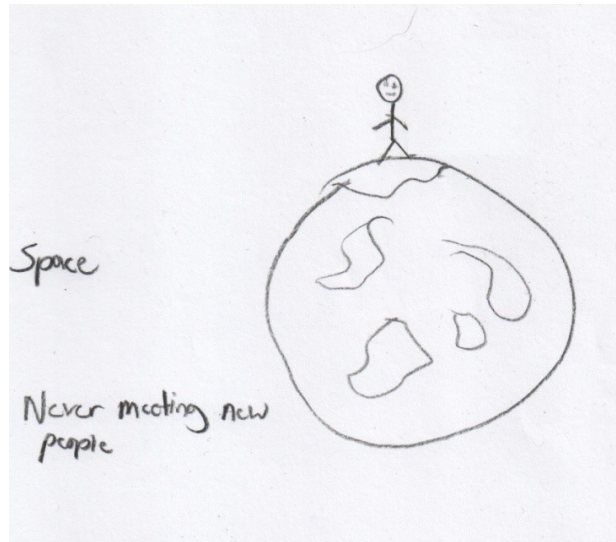 Space
Never meeting new
people